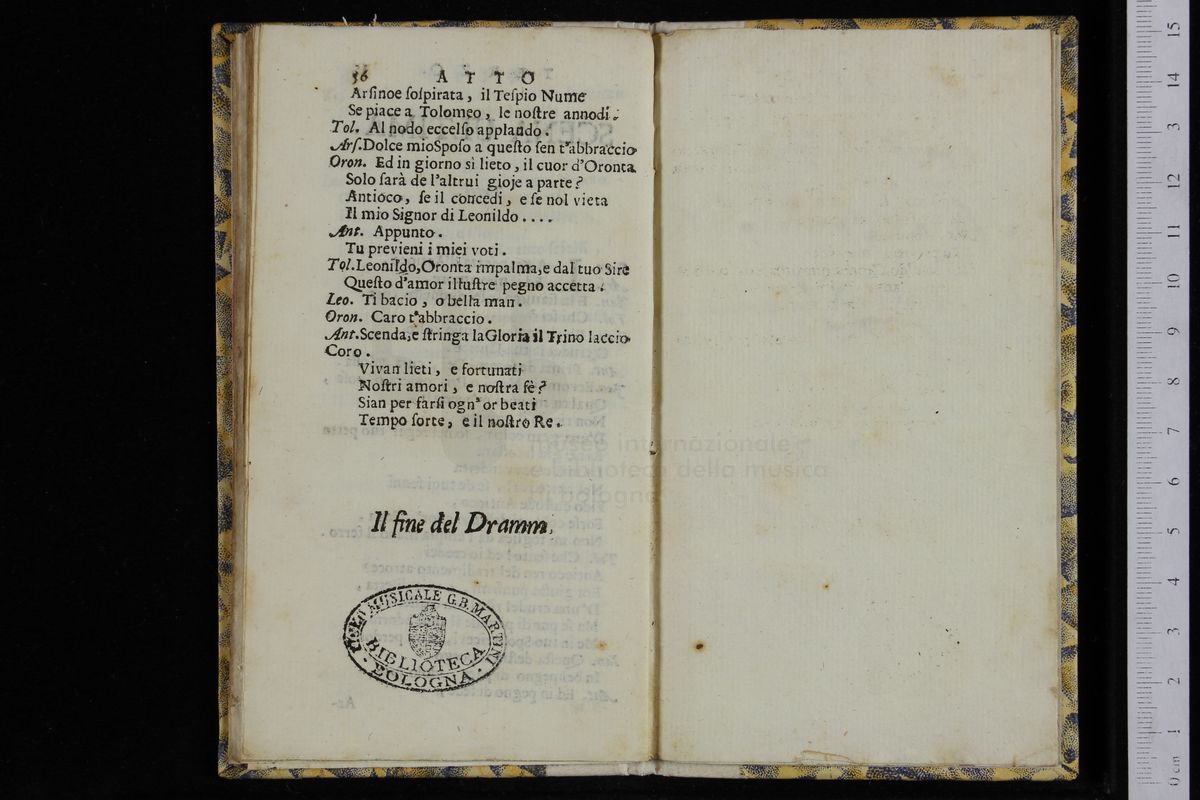 56 ATTO
Arſinoe ſoſpirata, il Teſpio Nume
Se piace a Tolomeo, le noſtre annodi.
Tol. Al nodo eccelſo applaudo.
Arſ. Dolce mio Spoſo a queſto ſen t'abbraccio
Oron. Ed in giorno sì lieto, il cuor d'Oronta
Solo ſarà de l'altrui gioje a parte?
Antioco, ſe il concedi, e ſe nol vieta
Il mio Signor di Leonildo....
Ant. Appunto.
Tu previeni i miei voti.
Tol. Leonildo, Oronta impalma, e dal tuo Sire
Queſto d'amor illuſtre pegno accetta.
Leo. Ti bacio, o bella man.
Oron. Caro t'abbraccio.
Ant. Scenda, e ſtringa la Gloria il Trino laccio
Coro.
Vivan lieti, e fortunati
Noſtri amori, e noſtra fè?
Sian per farſi ogn'or beati
Tempo ſorte, e il noſtro Re.
Il fine del Dramm.
LICEO MUSICALE G.B. MARTINI
BIBLIOTECA
BOLOGNA
museo internazionale
e biblioteca della musica
di bologna
0 cm 1 2 3 4 5 6 7 8 9 10 11 12 3 14 15